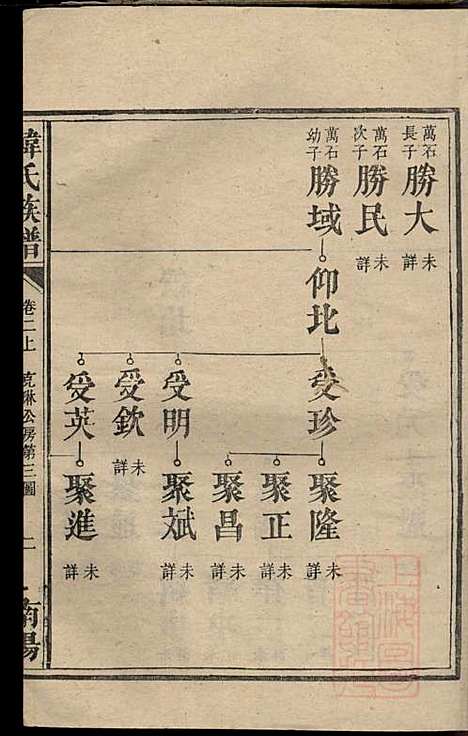 萬石長子勝大未詳
萬石次子勝民未詳
萬石幼子勝域
仰北
受珍
聚隆未詳
聚正未詳
聚昌未詳
受明
聚斌未詳
受欽未詳
受英
聚進未詳
韓氏族譜
卷二上
克琳公房第三圖
二
南陽